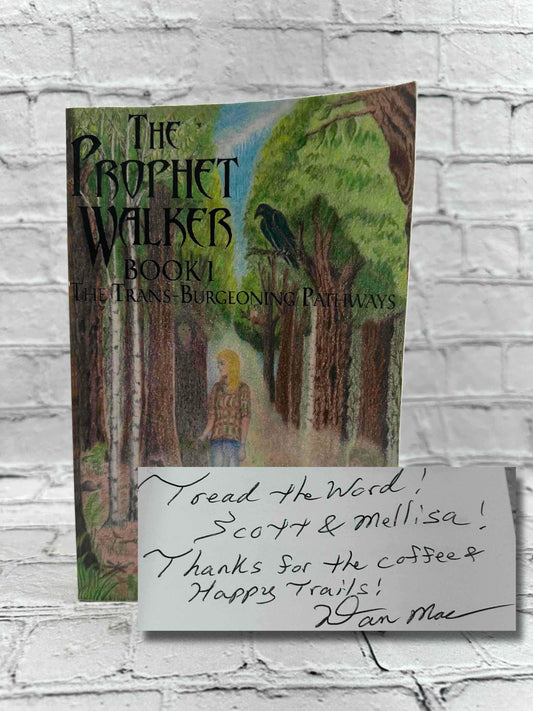 THE
PROPHET
WALKER
BOOK 1
THE TRANS-BURGEONING PATHWAYS
Tread the Word!
Scott & Mellisa!
Thanks for the coffee &
Happy Trails!
Dan Mac